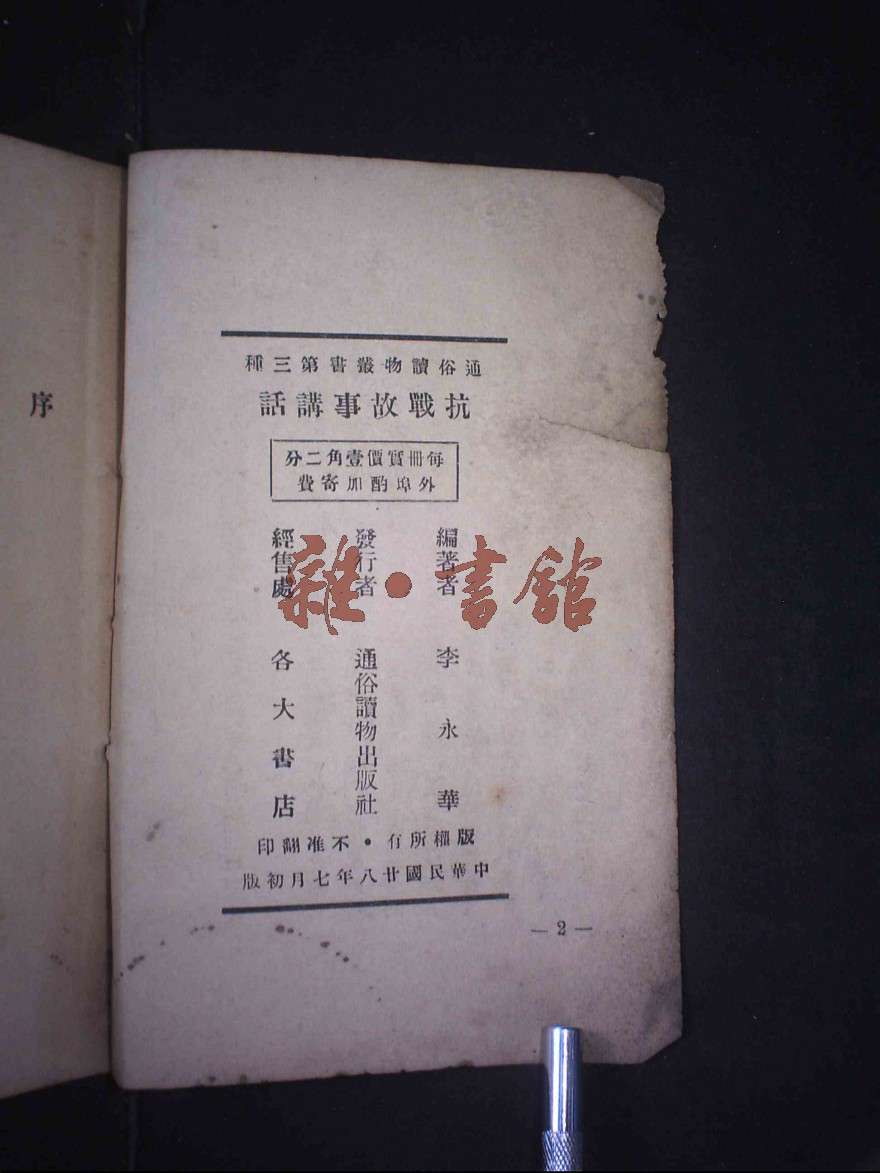 通俗讀物叢書第三種
抗戰故事講話
每冊實價壹角二分
外埠酌加寄費
編著者 李永華
發行者 通俗讀物出版社
經售處 各大書店
版權所有•不准翻印
中華民國廿八年七月初版
— 2 —
序
雜•書館